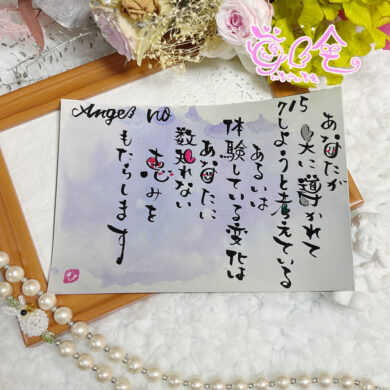 Angel no
あなたが
に導かれて
しようと考えている
あるいは
体験している変化は
あなたに
数知れない
恵みを
もたらします